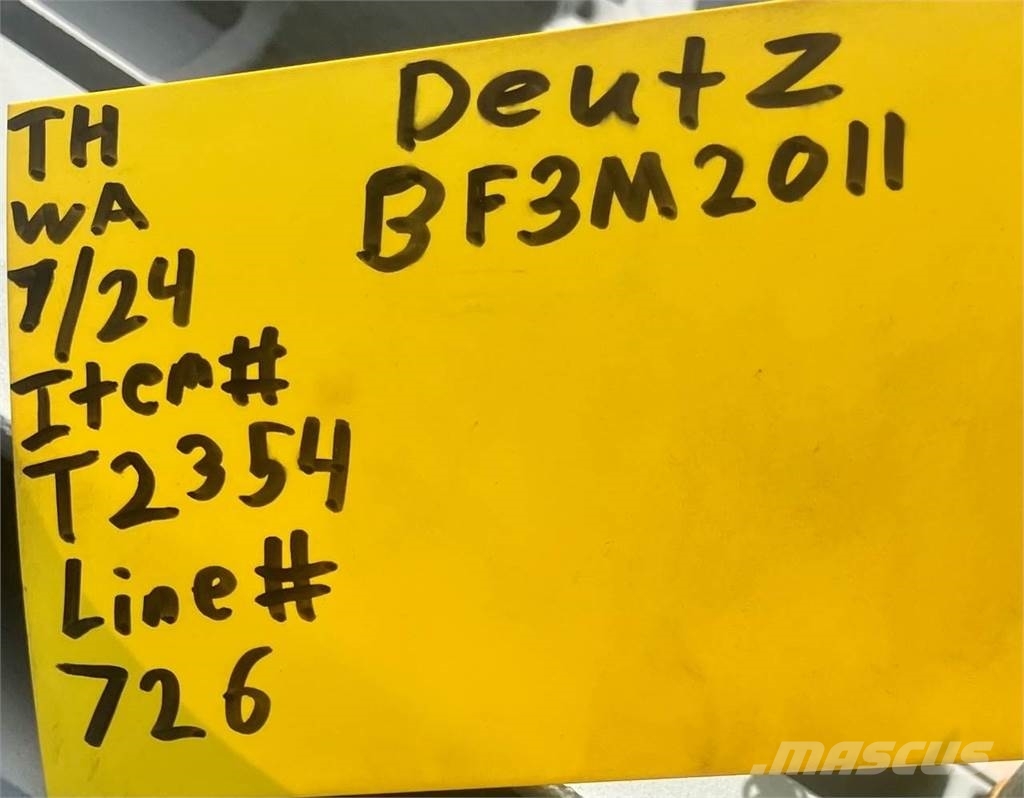 Deutz
BF3M2011
TH
WA
7/24
Item#
T2354
Line#
726
MASCUS